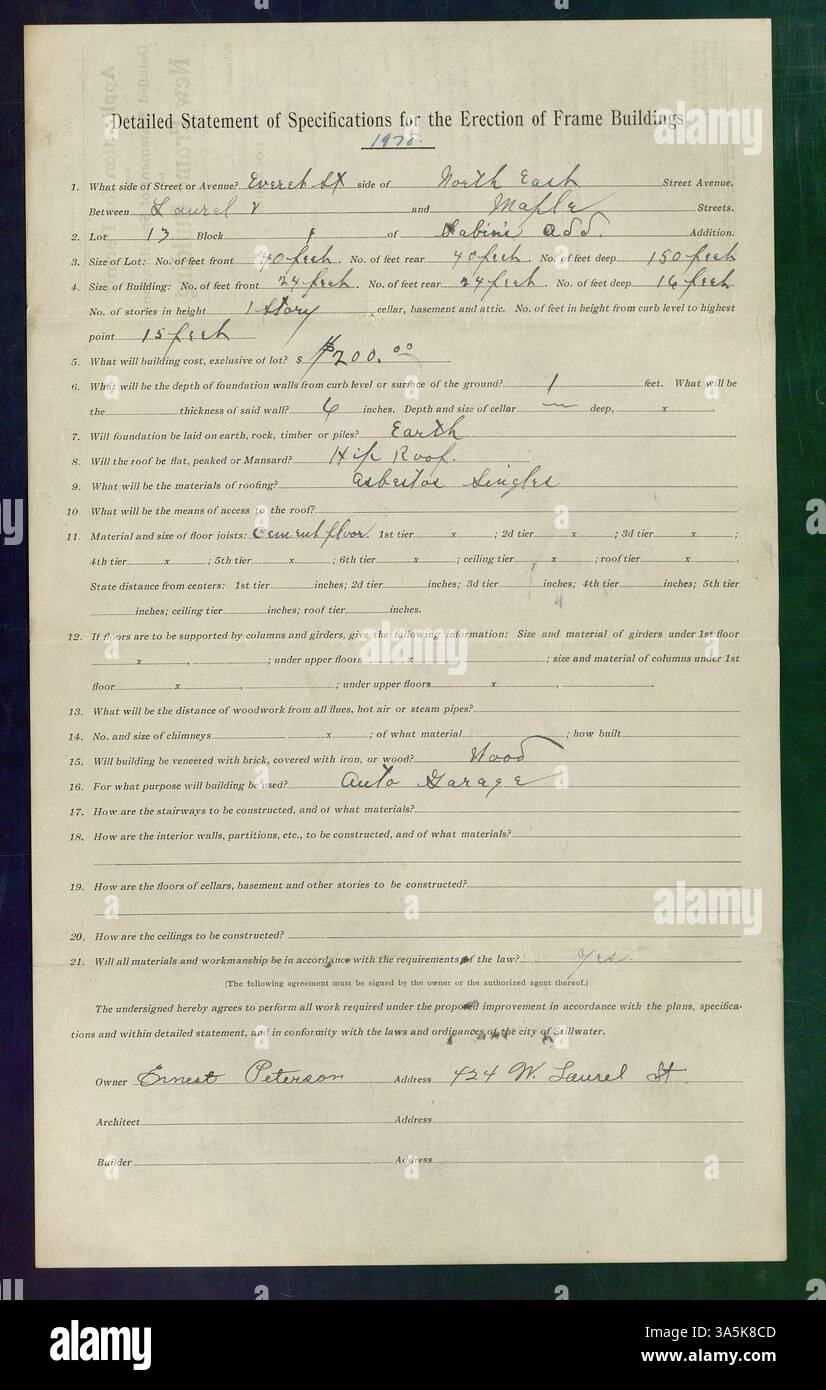 Detailed Statement of Specifications for the Erection of Frame Buildings
1. What side of Street or Avenue? Everett St side of North East Street Avenue.
Between Laurel & and Maple Streets.
2. Lot 17 Block of Sabin's Add. Addition.
3. Size of Lot: No. of feet front 40 feet. No. of feet rear 40 feet. No. of feet deep 150 feet
4. Size of Building: No. of feet front 24 feet. No. of feet rear 24 feet. No. of feet deep 16 feet
No. of stories in height 1 Story, cellar, basement and attic. No. of feet in height from curb level to highest
point 15 feet
5. What will building cost, exclusive of lot? $ $200.00
6. What will be the depth of foundation walls from curb level or surface of the ground? 1 feet. What will be
the thickness of said wall? 6 inches. Depth and size of cellar — deep, x .
7. Will foundation be laid on earth, rock, timber or piles? Earth
8. Will the roof be flat, peaked or Mansard? Hip Roof.
9. What will be the materials of roofing? Asbestos Singles
10. What will be the means of access to the roof?
11. Material and size of floor joists: Cement floor. 1st tier x ; 2d tier x ; 3d tier x ;
4th tier x ; 5th tier x ; 6th tier x ; ceiling tier x ; roof tier x .
State distance from centers: 1st tier inches; 2d tier inches; 3d tier inches; 4th tier inches; 5th tier
inches; ceiling tier inches; roof tier inches.
12. If floors are to be supported by columns and girders, give the following information: Size and material of girders under 1st floor
x , ; under upper floors x ; size and material of columns under 1st
floor x , ; under upper floors x , .
13. What will be the distance of woodwork from all flues, hot air or steam pipes?
14. No. and size of chimneys x ; of what material ; how built
15. Will building be veneered with brick, covered with iron, or wood? Wood
16. For what purpose will building be used? Auto Garage
17. How are the stairways to be constructed, and of what materials?
18. How are the interior walls, partitions, etc., to be constructed, and of what materials?
19. How are the floors of cellars, basement and other stories to be constructed?
20. How are the ceilings to be constructed?
21. Will all materials and workmanship be in accordance with the requirements of the law? Yes
(The following agreement must be signed by the owner or the authorized agent thereof.)
The undersigned hereby agrees to perform all work required under the proposed improvement in accordance with the plans, specifica-
tions and within detailed statement, and in conformity with the laws and ordinances of the city of Stillwater.
Owner Ernest Peterson Address 424 W. Laurel St.
Architect Address
Builder Address
alamy
Image ID: 3A5K8CD
www.alamy.com